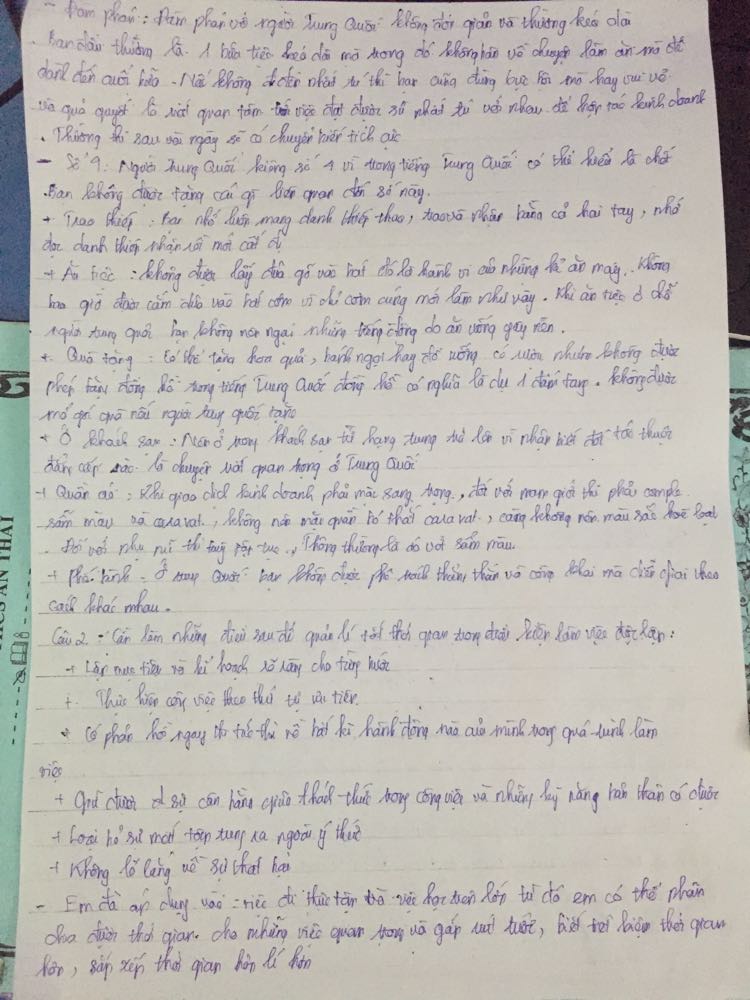 - Đàm phán : Đàm phán với người Trung Quốc không đơn giản và thường kéo dài
. Ban đầu thường là 1 bữa tiệc kéo dài mà trong đó không bàn về chuyện làm ăn mà để
dành đến cuối bữa . Nếu không đi đến nhất trí thì bạn cũng đừng bực bội mà hãy vui vẻ
và quả quyết là rất quan tâm tới việc đạt được sự nhất trí với nhau để hợp tác kinh doanh
. Thường thì sau vài ngày sẽ có chuyển biến tích cực
- Số 4 : Người Trung Quốc kiêng số 4 vì trong tiếng Trung Quốc có thể hiểu là chết
. Bạn không được tặng cái gì liên quan đến số này.
+ Trao thiếp : Bạn nhớ luôn mang danh thiếp theo, trao và nhận bằng cả hai tay, nhớ
đọc danh thiếp nhận rồi mới cất đi
+ Ăn tiệc : không được lấy đũa gõ vào bát đó là hành vi của những kẻ ăn mày. Không
bao giờ được cắm đũa vào bát cơm vì chỉ cơm cúng mới làm như vậy . Khi ăn tiệc ở chỗ
người trung quốc bạn không nên ngại những tiếng động do ăn uống gây nên .
+ Quà tặng : Có thể tặng hoa quả, bánh ngọt hay đồ uống có rượu nhưng không được
phép tặng đồng hồ trong tiếng Trung Quốc đồng hồ có nghĩa là dự 1 đám tang . Không được
mở gói quà nếu người trung quốc tặng
+ Ở khách sạn : Nên ở trong khách sạn từ hạng trung trở lên vì nhận biết đặt tức thuộc
đẳng cấp nào là chuyện rất quan trọng ở Trung Quốc
+ Quần áo : Khi giao dịch kinh doanh phải mặc sang trọng, đối với nam giới thì phải comple
sẫm màu và caravat, không nên mặc quần bò thắt caravat, càng không nên màu sắc loè loẹt
. Đối với phụ nữ thì tuỳ tập tục, Thông thường là áo vét sẫm màu.
+ Phê bình - Ở trung Quốc bạn không được phê trách thẳng thắn và công khai mà diễn giải theo
cách khác nhau .
Câu 2 : Cần làm những điều sau để quản lí tốt thời gian trong điều kiện làm việc độc lập :
+ Lập mục tiêu và kế hoạch rõ ràng cho từng bước
+ Thực hiện công việc theo thứ tự ưu tiên.
+ Có phản hồi ngay tức thì về bất kì hành động nào của mình trong quá trình làm
việc
+ Giữ được sự cân bằng giữa thách thức trong công việc và những kỹ năng bản thân có được
+ Loại bỏ sự mất tập trung ra ngoài ý thức
+ Không lo lắng về sự thất bại
- Em đã áp dụng vào : việc đi thực tập và việc học trên lớp từ đó em có thể phân
chia được thời gian cho những việc quan trọng và gấp rút trước, biết tiết kiệm thời gian
hơn, sắp xếp thời gian hợp lí hơn
THCS AN THÁI